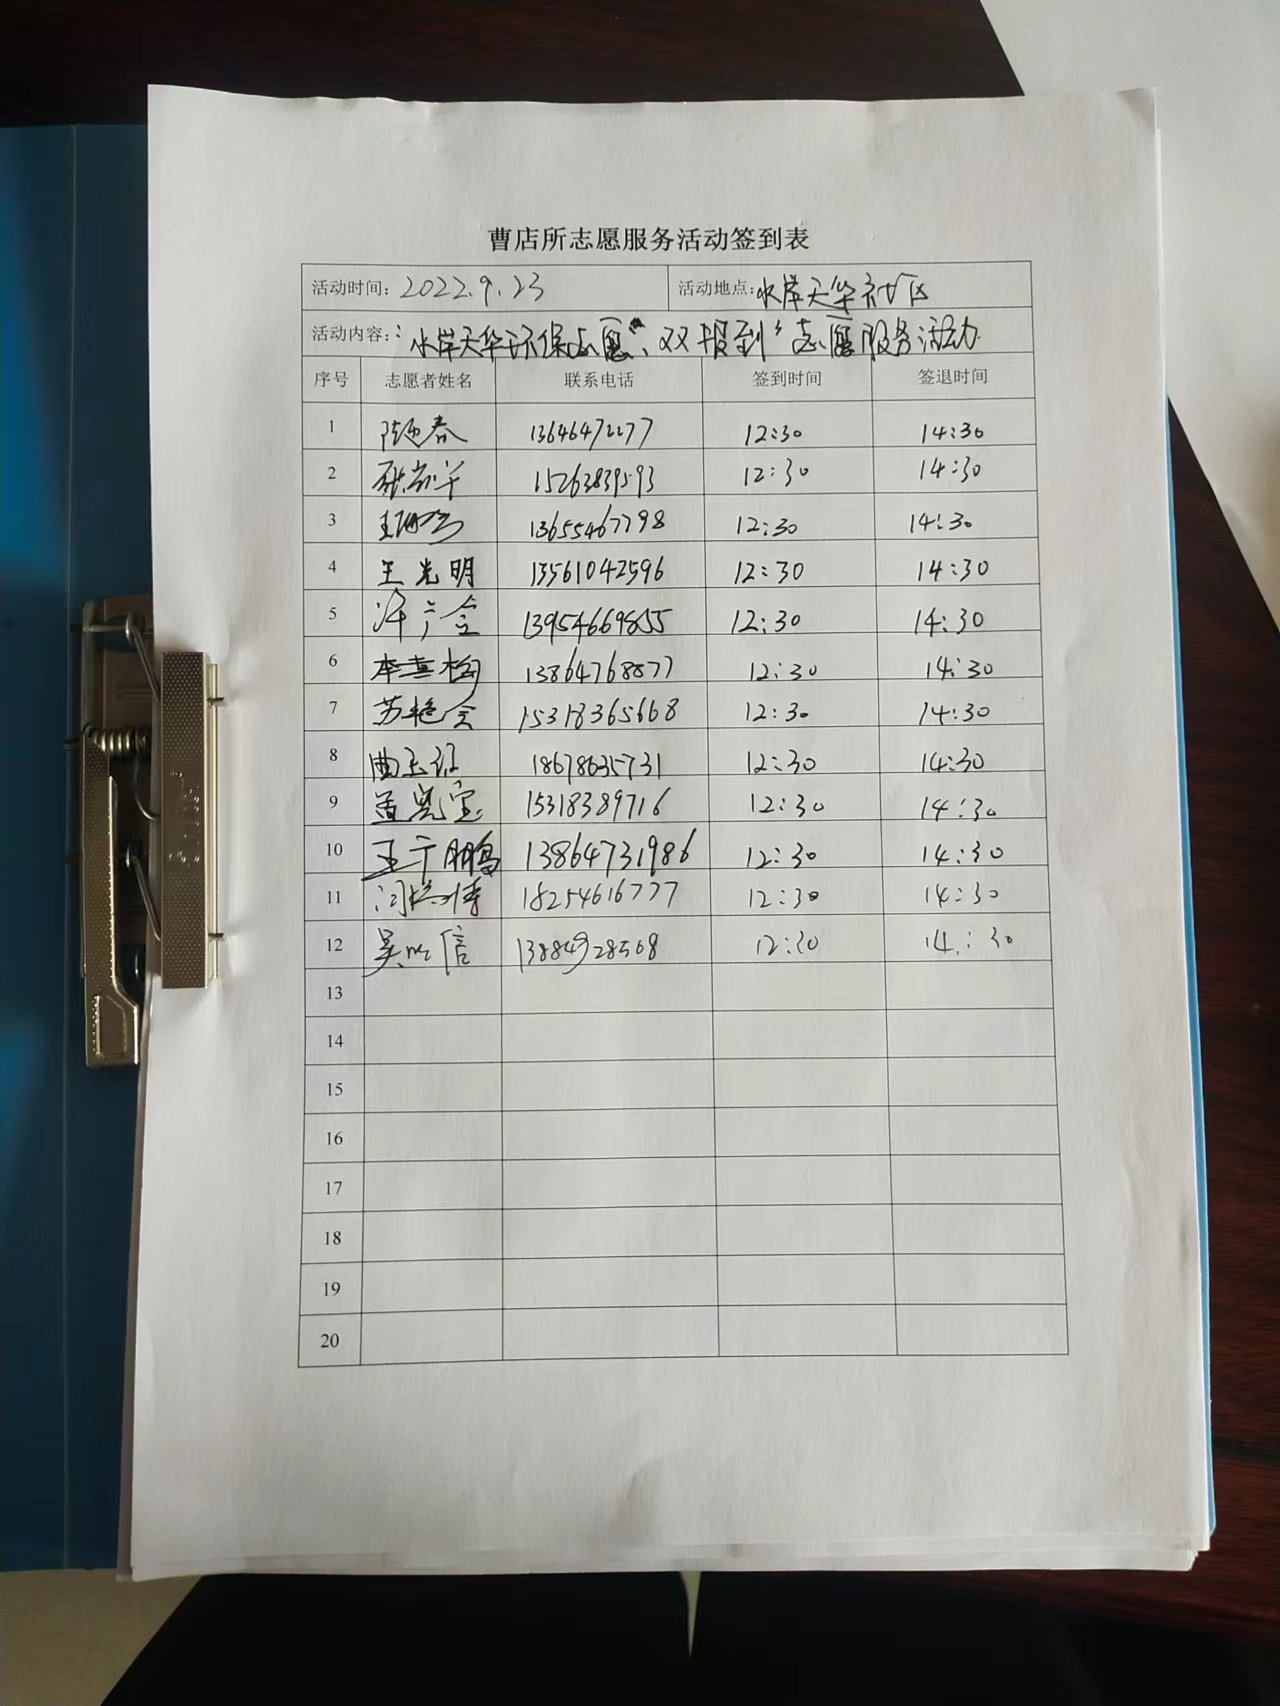 曹店所志愿服务活动签到表
活动时间: 2022.9.23 活动地点: 水岸天华社区
活动内容: 水岸天华环保志愿“双报到”志愿服务活动
序号 志愿者姓名 联系电话 签到时间 签退时间
1 13646472277 12:30 14:30
2 15263839593 12:30 14:30
3 13655467798 12:30 14:30
4 王光明 13561042596 12:30 14:30
5 13954669855 12:30 14:30
6 13864768877 12:30 14:30
7 苏艳会 15318365668 12:30 14:30
8 18678635731 12:30 14:30
9 15318389716 12:30 14:30
10 王广鹏 13864731986 12:30 14:30
11 18254616777 12:30 14:30
12 12:30 14:30
13
14
15
16
17
18
19
20